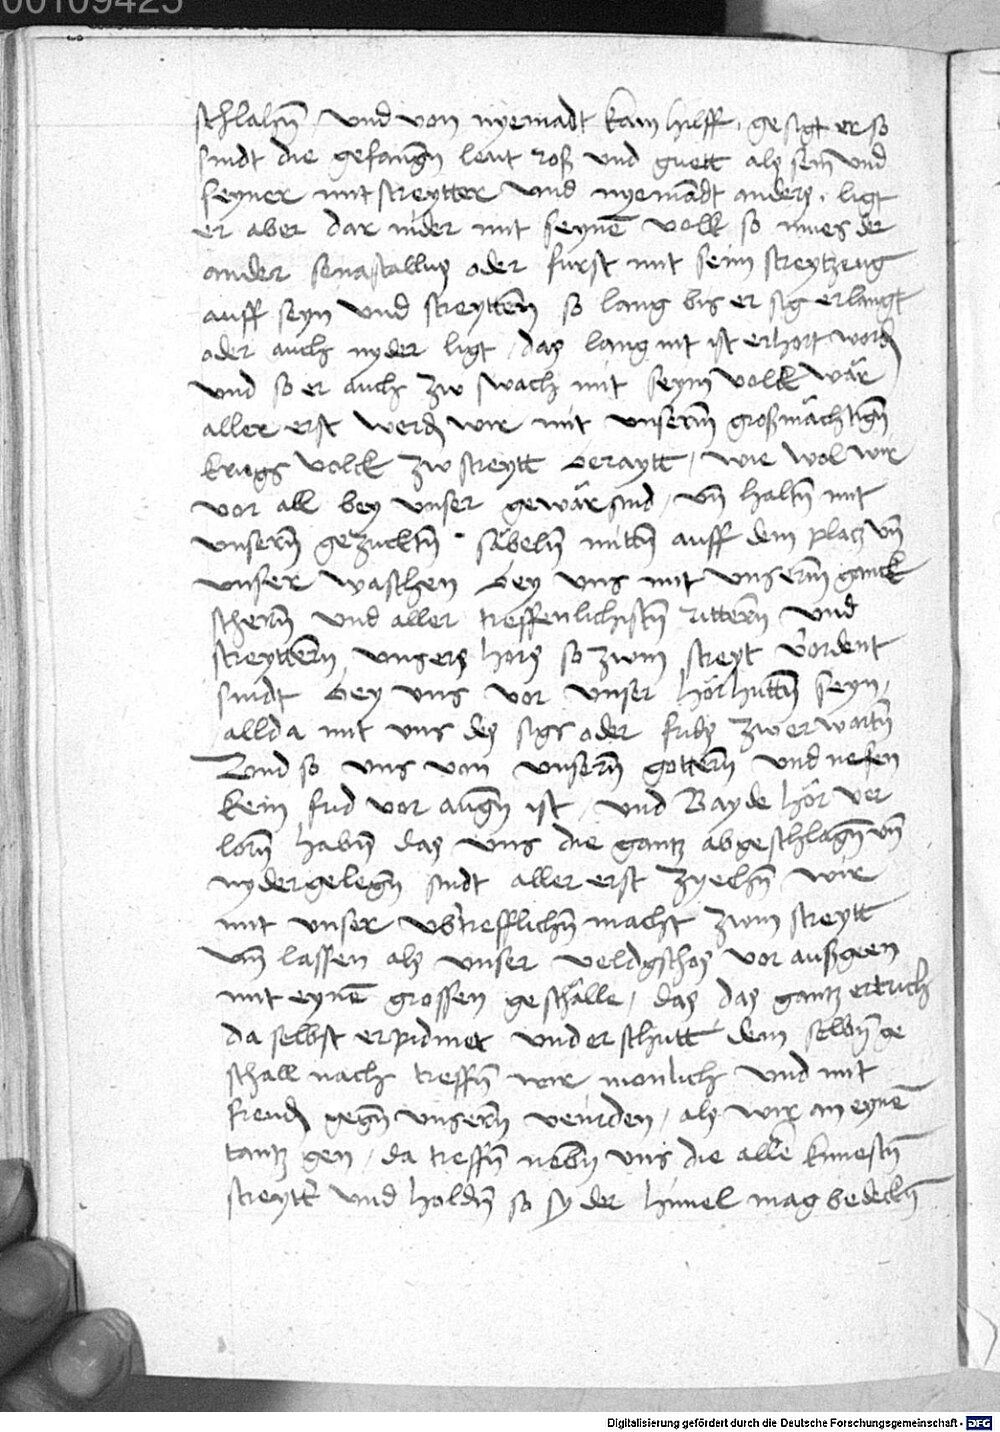 00109425
schlahn̄ / vnd von nyemadt kain hilff / gesigt er so
sindt die gefangn̄ leut roß vnd guett als sein vnd
seyner mitstreytter vnd nyemādt anders . ligt
er aber dar nider mit seynē volk so mues der
ander senastallus oder furst mit seim streytzeug
auff seyn vnd streyttē so lang bis er sig erlangt
oder auch nyder ligt / das lang nit ist erhort word
vnd so er auch zw swach mit seym volck wär
aller erst werd wir mit vnserm̄ großmächtign̄
kriegs volck zw streytt beraytt / wie wol wir
vor all bey vnser gewär sind / vn̄ haltn̄ mit
vnsern̄ gezucktn̄ säbeln̄ mittn̄ auff dem platz vn̄
vnser waschen bey vns mit vnserm̄ ganck
schern̄ vnd aller treffenlichistn̄ rittern̄ vnd
streyttern̄ vnsers hors so zwm streyt verordent
sindt bey vns vor vnser hörhuttn̄ seyn /
allda mit vns des sigs oder frids zw erwartn̄
Vnd so vns von vnsern̄ gottern̄ vnd nefen
kein frid vor augn̄ ist / vnd Bayde hör ver
lorn̄ habn̄ das vns die gantz abgeschlagn̄ vn̄
nydergelegn̄ sindt aller erst zyechn̄ wir
mit vnser vbtrefflichn̄ macht zwm streytt
vn̄ lassen als vnser veldgschos vor außgeen
mit eynē grossen geschälle / das das gantz ertrich
da selbst erpidmet vnd erschutt dem selbn̄ ge
schall nach treffn̄ wir monlich vnd mit
freud gegn̄ vnsern̄ veinden / als wir an eynē
tantz gen / da treffn̄ nebn̄ vns die aller kunestn̄
streytt vnd holdn̄ so sy der himel mag bedeckn̄
Digitalisierung gefördert durch die Deutsche Forschungsgemeinschaft - DFG